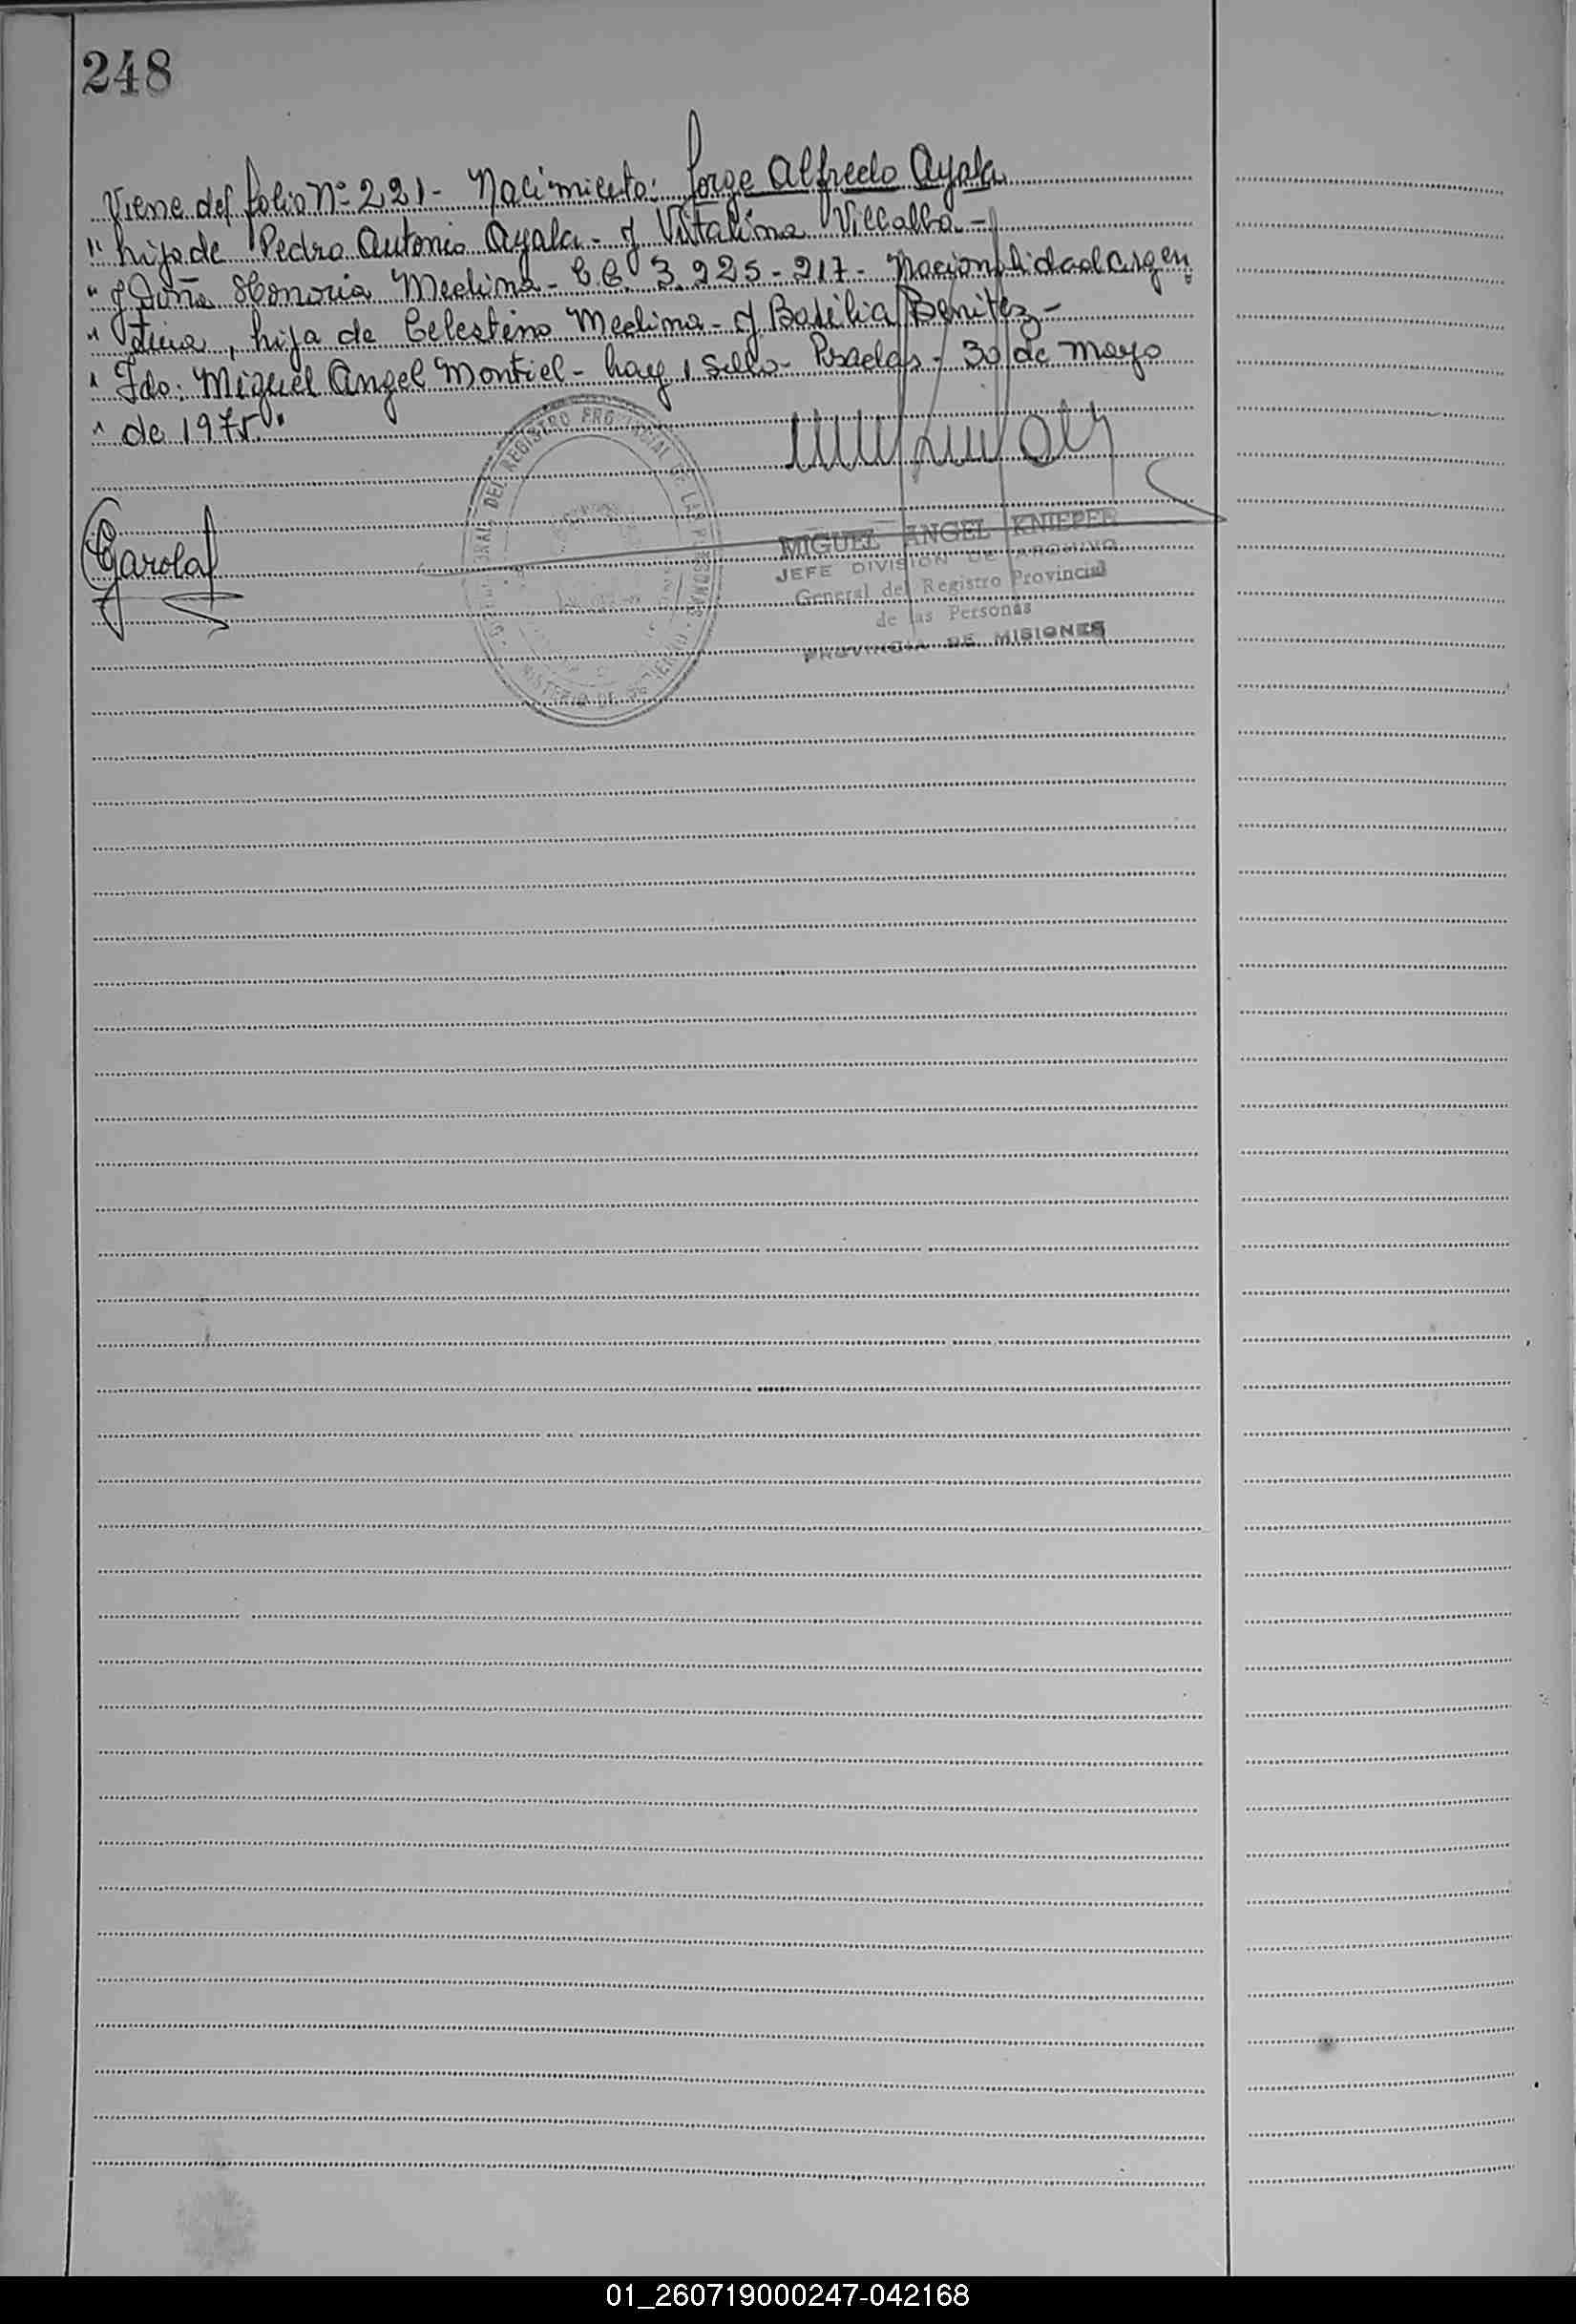 248
Viene del folio Nº 221- Nacimiento: Jorge Alfredo Ayala
" hijo de Pedro Antonio Ayala - y Vitalina Villalba -
" y Doña Honoria Medina - C.C. 3.225-217- Nacionalidad argen
" tina, hija de Celestino Medina - y Basilia Benitez -
" Fdo: Miguel Angel Montiel - hay 1 sello - Posadas - 30 de mayo
" de 1975."
DEL REGISTRO PROVINCIAL DE LAS PERSONAS
Garola
MIGUEL ANGEL KNIEPER
JEFE DIVISION DE ARCHIVO
General del Registro Provincial
de las Personas
PROVINCIA DE MISIONES
01_260719000247-042168